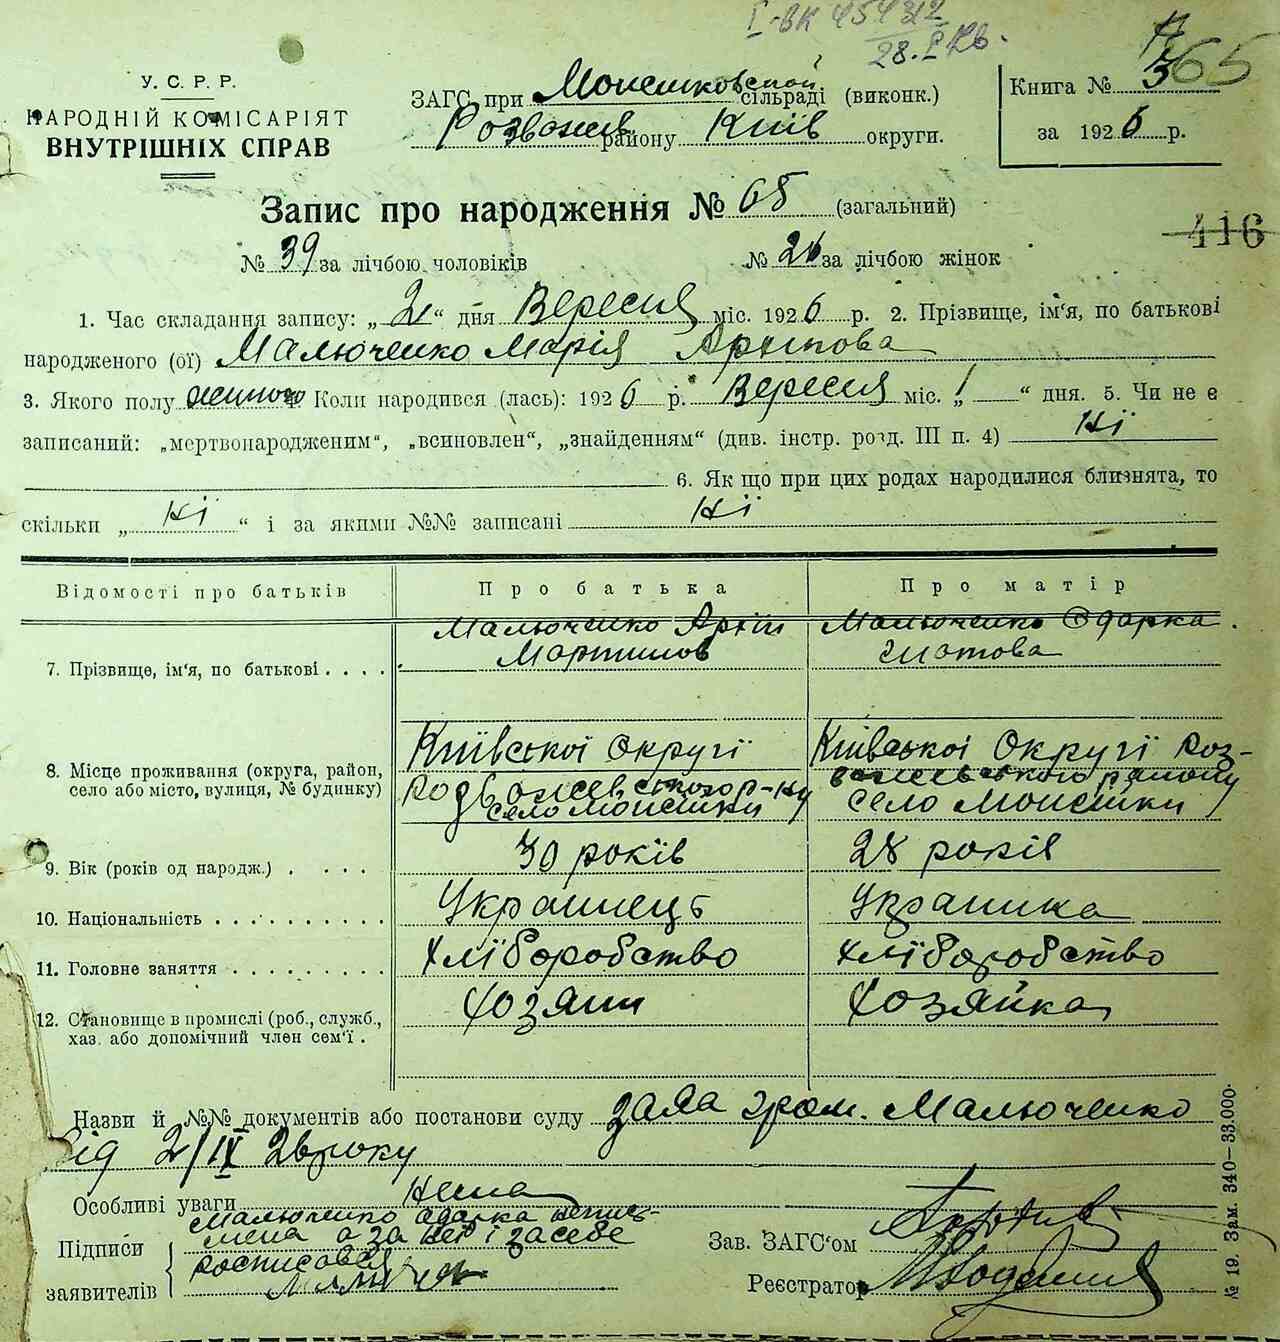 I-ВК 454312
28.I
365
У. С. Р. Р.
НАРОДНІЙ КОМІСАРІЯТ
ВНУТРІШНІХ СПРАВ
ЗАГС при Моисиковской сільраді (виконк.)
Розважев району Київ округи.
Книга № 3
за 1926 р.
Запис про народження № 65 (загальний)
416
№ 39 за лічбою чоловіків № 26 за лічбою жінок
1. Час складання запису: „2“ дня Вересня міс. 1926 р. 2. Прізвище, ім'я, по батькові
народженого (ої) Малюченко Марія Архипова
3. Якого полу жиного 4 Коли народився (лась): 1926 р. Вересня міс. „1“ дня. 5. Чи не є
записаний: „мертвонародженим“, „всиновлен“, „знайденням“ (див. інстр. розд. III п. 4) Ні
6. Як що при цих родах народилися близнята, то
скільки „ Ні “ і за якими №№ записані Ні
Відомості про батьків Про батька Про матір
Малюченко Архип Малюченко Одарка
7. Прізвище, ім'я, по батькові . . . . Мартинов
Київської Округи Київської Округи Роз-
8. Місце проживання (округа, район, Розважевського р-ну важевського району
село або місто, вулиця, № будинку) село Моисійки село Моисійки
9. Вік (років од народж.) . . . . . 30 років 28 років
10. Національність . . . . . . . . . . Украинець Украинка
11. Головне заняття . . . . . . . . . Хліборобство Хліборобство
12. Становище в промислі (роб., служб., Хозяин Хозяйка
хаз. або допомічний член сем'ї .
Назви й №№ документів або постанови суду заява гром. Малюченко
від 2/IX 26 року
Особливі уваги Нема
Малюченко Одарка непись-
Підписи мена а за неї і засебе
росписався Зав. ЗАГС'ом
заявителів Реєстратор
№ 19. Зам. 340—33.000.